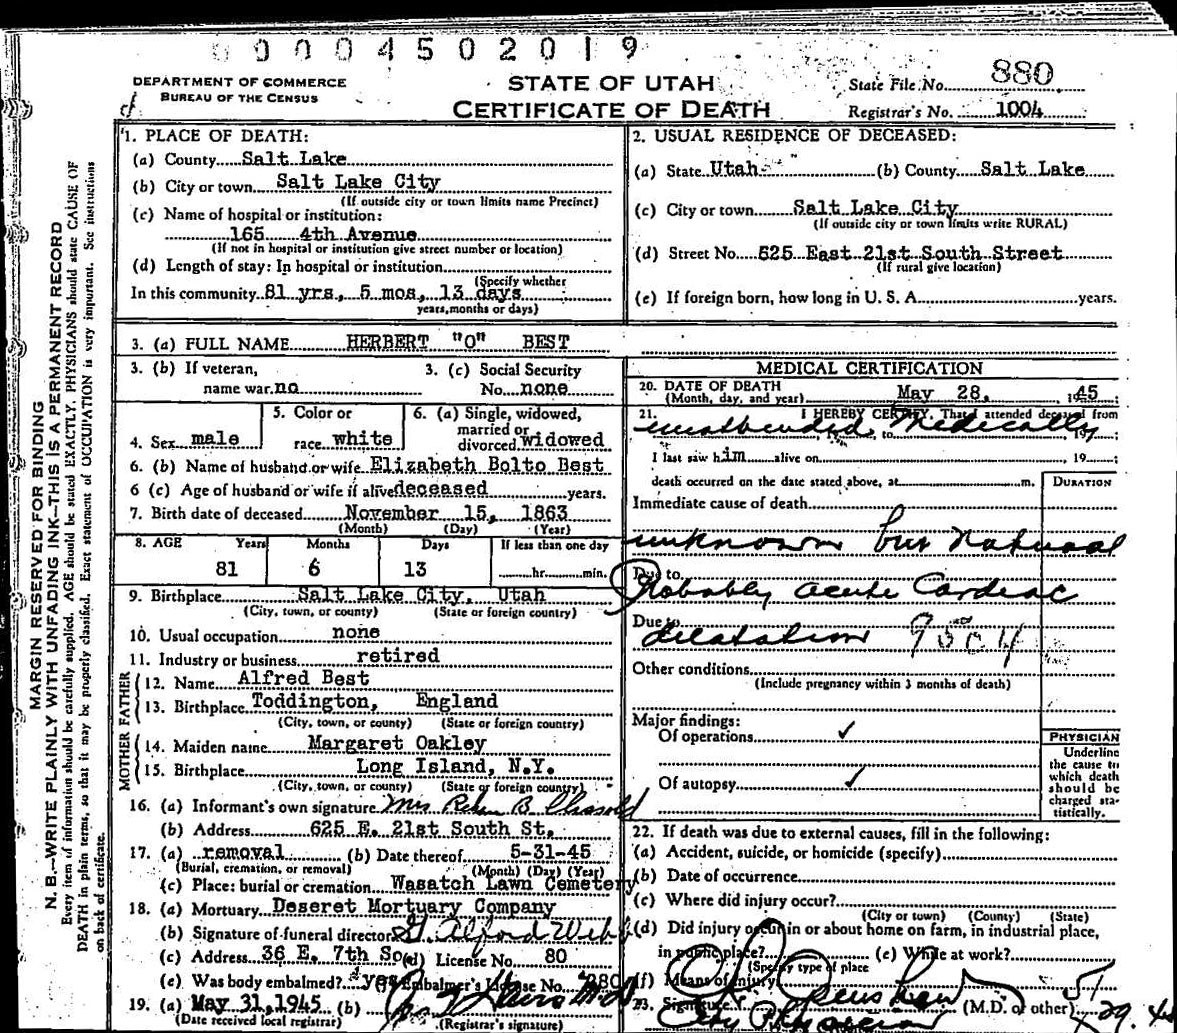 0 0 0 0 4 5 0 2 0 1 9
DEPARTMENT OF COMMERCE
BUREAU OF THE CENSUS
STATE OF UTAH
CERTIFICATE OF DEATH
State File No. 880
Registrar's No. 1004
MARGIN RESERVED FOR BINDING
N. B.—WRITE PLAINLY WITH UNFADING INK—THIS IS A PERMANENT RECORD
Every item of information should be carefully supplied. AGE should be stated EXACTLY. PHYSICIANS should state CAUSE OF
DEATH in plain terms, so that it may be properly classified. Exact statement of OCCUPATION is very important. See instructions
on back of certificate.
1. PLACE OF DEATH:
(a) County Salt Lake
(b) City or town Salt Lake City
(If outside city or town limits name Precinct)
(c) Name of hospital or institution:
165 4th Avenue
(If not in hospital or institution give street number or location)
(d) Length of stay: In hospital or institution
(Specify whether
In this community 81 yrs., 5 mos, 13 days
years, months or days)
2. USUAL RESIDENCE OF DECEASED:
(a) State Utah (b) County Salt Lake
(c) City or town Salt Lake City
(If outside city or town limits write RURAL)
(d) Street No. 625 East 21st South Street
(If rural give location)
(e) If foreign born, how long in U. S. A. years.
3. (a) FULL NAME HERBERT "O" BEST
3. (b) If veteran,
name war no
3. (c) Social Security
No. none
4. Sex male
5. Color or
race white
6. (a) Single, widowed,
married or
divorced widowed
6. (b) Name of husband or wife Elizabeth Bolto Best
6 (c) Age of husband or wife if alive deceased years.
7. Birth date of deceased November 15, 1863
(Month) (Day) (Year)
8. AGE Years Months Days If less than one day
81 6 13 hr. min.
9. Birthplace Salt Lake City, Utah
(City, town, or county) (State or foreign country)
10. Usual occupation none
11. Industry or business retired
FATHER
12. Name Alfred Best
13. Birthplace Toddington, England
(City, town, or county) (State or foreign country)
MOTHER
14. Maiden name Margaret Oakley
15. Birthplace Long Island, N.Y.
(City, town, or county) (State or foreign country)
16. (a) Informant's own signature Mrs. B.
(b) Address 625 E. 21st South St.
17. (a) removal (b) Date thereof 5-31-45
(Burial, cremation, or removal) (Month) (Day) (Year)
(c) Place: burial or cremation Wasatch Lawn Cemetery
18. (a) Mortuary Deseret Mortuary Company
(b) Signature of funeral director G. Alford Webb
(c) Address 36 E. 7th So. (d) License No. 80
(e) Was body embalmed? yes Embalmer's License No. 280
19. (a) May 31, 1945 (b)
(Date received local registrar) (Registrar's signature)
MEDICAL CERTIFICATION
20. DATE OF DEATH
(Month, day, and year) May 28, 1945
21. I HEREBY CERTIFY, That I attended deceased from
unattended Medically
19 , to 19 ;
I last saw him alive on , 19 ;
death occurred on the date stated above, at m.
DURATION
Immediate cause of death
unknown but Natural
Due to
Probably acute Cardiac
Due to
dilatation
Other conditions
(Include pregnancy within 3 months of death)
Major findings:
Of operations ✓
Of autopsy ✓
PHYSICIAN
Underline
the cause to
which death
should be
charged sta-
tistically.
22. If death was due to external causes, fill in the following:
(a) Accident, suicide, or homicide (specify)
(b) Date of occurrence
(c) Where did injury occur?
(City or town) (County) (State)
(d) Did injury occur in or about home on farm, in industrial place,
in public place? (e) While at work?
(Specify type of place
(f) Means of injury
23. Signature (M.D. or other)
City Physician